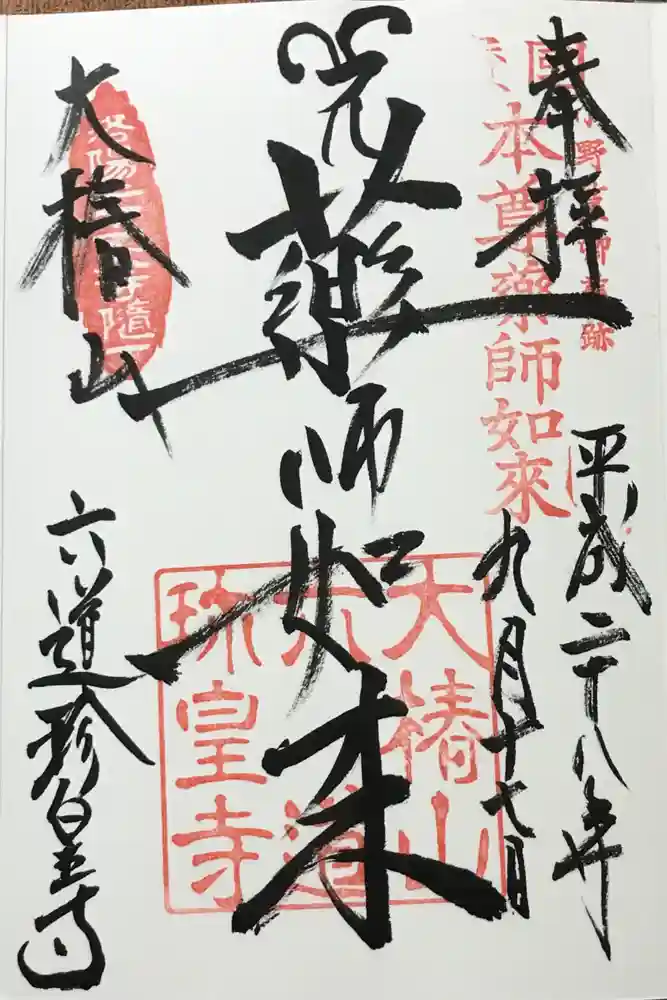 奉拝
平成二十八年
九月十七日
本尊藥師如來
薬師如来
大椿山
六道
珍皇寺
大椿山
六道珍皇寺